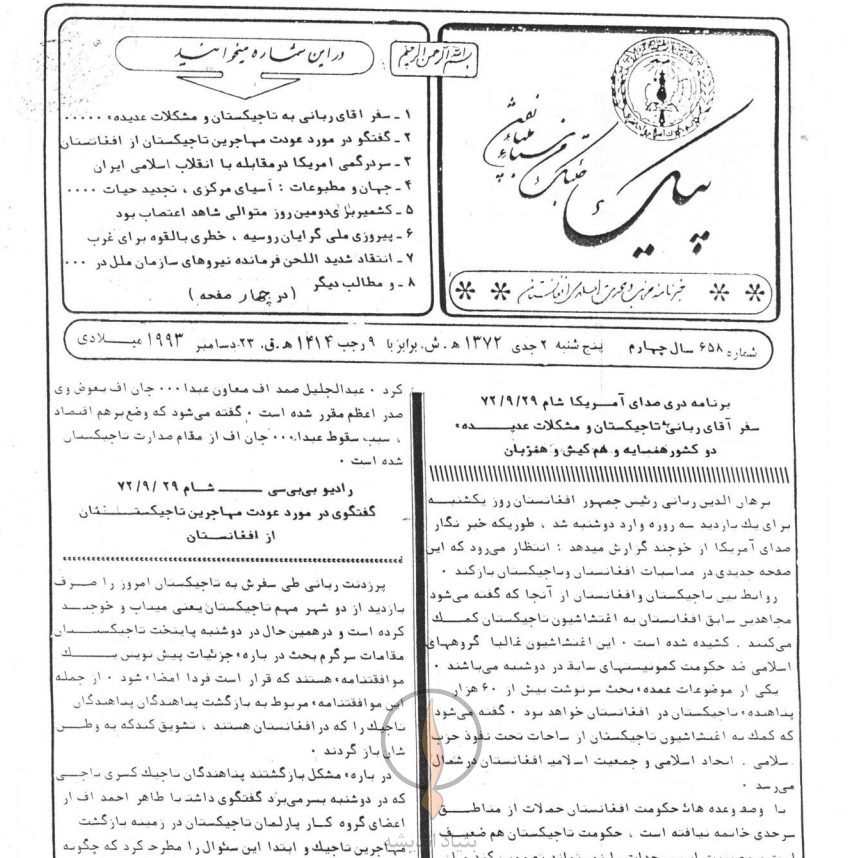 بسم الله الرحمن الرحیم
پیک
خبرنامه
در این شماره میخوانید
۱ ـ سفر اقای ربانی به تاجیکستان و مشکلات عدیده ۰۰۰۰۰
۲ ـ گفتگو در مورد عودت مهاجرین تاجیکستان از افغانستان
۳ ـ سردرگمی امریکا درمقابله با انقلاب اسلامی ایران
۴ ـ جهان و مطبوعات : آسیای مرکزی ، تجدید حیات ۰۰۰۰
۵ ـ کشمیر برای دومین روز متوالی شاهد اعتصاب بود
۶ ـ پیروزی ملی گرایان روسیه ، خطری بالقوه برای غرب
۷ ـ انتقاد شدید اللحن فرمانده نیروهای سازمان ملل در ۰۰۰
۸ ـ و مطالب دیگر
( در چهار صفحه )
شماره ۶۵۸ سال چهارم پنج شنبه ۲ جدی ۱۳۷۲ ه‍.ش. برابر با ۹ رجب ۱۴۱۴ ه‍.ق. ۲۳ دسامبر ۱۹۹۳ میلادی
برنامه دری صدای آمریکا شام ۷۲/۹/۲۹
سفر آقای ربانی به تاجیکستان و مشکلات عدیده
دو کشور همسایه و هم کیش و همزبان
برهان الدین ربانی رئیس جمهور افغانستان روز یکشنبه
برای یك بازدید سه روزه وارد دوشنبه شد ، طوریکه خبر نگار
صدای آمریکا از خوجند گزارش میدهد : انتظار می‌رود که این
صفحه جدیدی در مناسبات افغانستان وتاجیکستان باز کند ۰
روابط بین تاجیکستان وافغانستان از آنجا که گفته می‌شود
مجاهدین سابق افغانستان به اغتشاشیون تاجیکستان کمك
می‌کنند ، کشیده شده است ۰ این اغتشاشیون غالبا گروههای
اسلامی ضد حکومت کمونیستهای سابق در دوشنبه می‌باشند ۰
یکی از موضوعات عمده بحث سرنوشت بیش از ۶۰ هزار
پناهنده تاجیکستان در افغانستان خواهد بود ۰ گفته می‌شود
که کمك به اغتشاشیون تاجیکستان از ساحات تحت نفوذ حزب
اسلامی ، اتحاد اسلامی و جمعیت اسلامی افغانستان در شمال
می‌رسد ۰
با وصف وعده های حکومت افغانستان حملات از مناطق
سرحدی خاتمه نیافته است ، حکومت تاجیکستان هم ضعیف
کرد ۰ عبدالجلیل صمد اف معاون عبدا۰۰۰ جان اف بعوض وی
صدر اعظم مقرر شده است ۰ گفته می‌شود که وضع برهم اقتصاد
، سبب سقوط عبدا۰۰۰ جان اف از مقام صدارت تاجیکستان
شده است ۰
رادیو بی‌بی‌سی شام ۷۲/۹/۲۹
گفتگوی در مورد عودت مهاجرین تاجیکستان
از افغانستان
پرزدنت ربانی طی سفرش به تاجیکستان امروز را صرف
بازدید از دو شهر مهم تاجیکستان یعنی میناب و خوجند
کرده است و درهمین حال در دوشنبه پایتخت تاجیکستان
مقامات سرگرم بحث در باره جزئیات پیش نویس یك
موافقتنامه هستند که قرار است فردا امضا شود ۰ از جمله
این موافقتنامه مربوط به بازگشت پناهندگان پناهندگان
تاجیك را که در افغانستان هستند ، تشویق کند که به وطن
شان باز گردند ۰
در باره مشکل بازگشتند پناهندگان تاجیك کسری ناجی
که در دوشنبه بسر می‌برد گفتگوی داشته با طاهر احمد اف از
اعضای گروه کار پارلمان تاجیکستان در زمینه بازگشت
مهاجرین تاجیك و ابتدا این سئوال را مطرح کرد که چگونه
بنیاد اندیشه